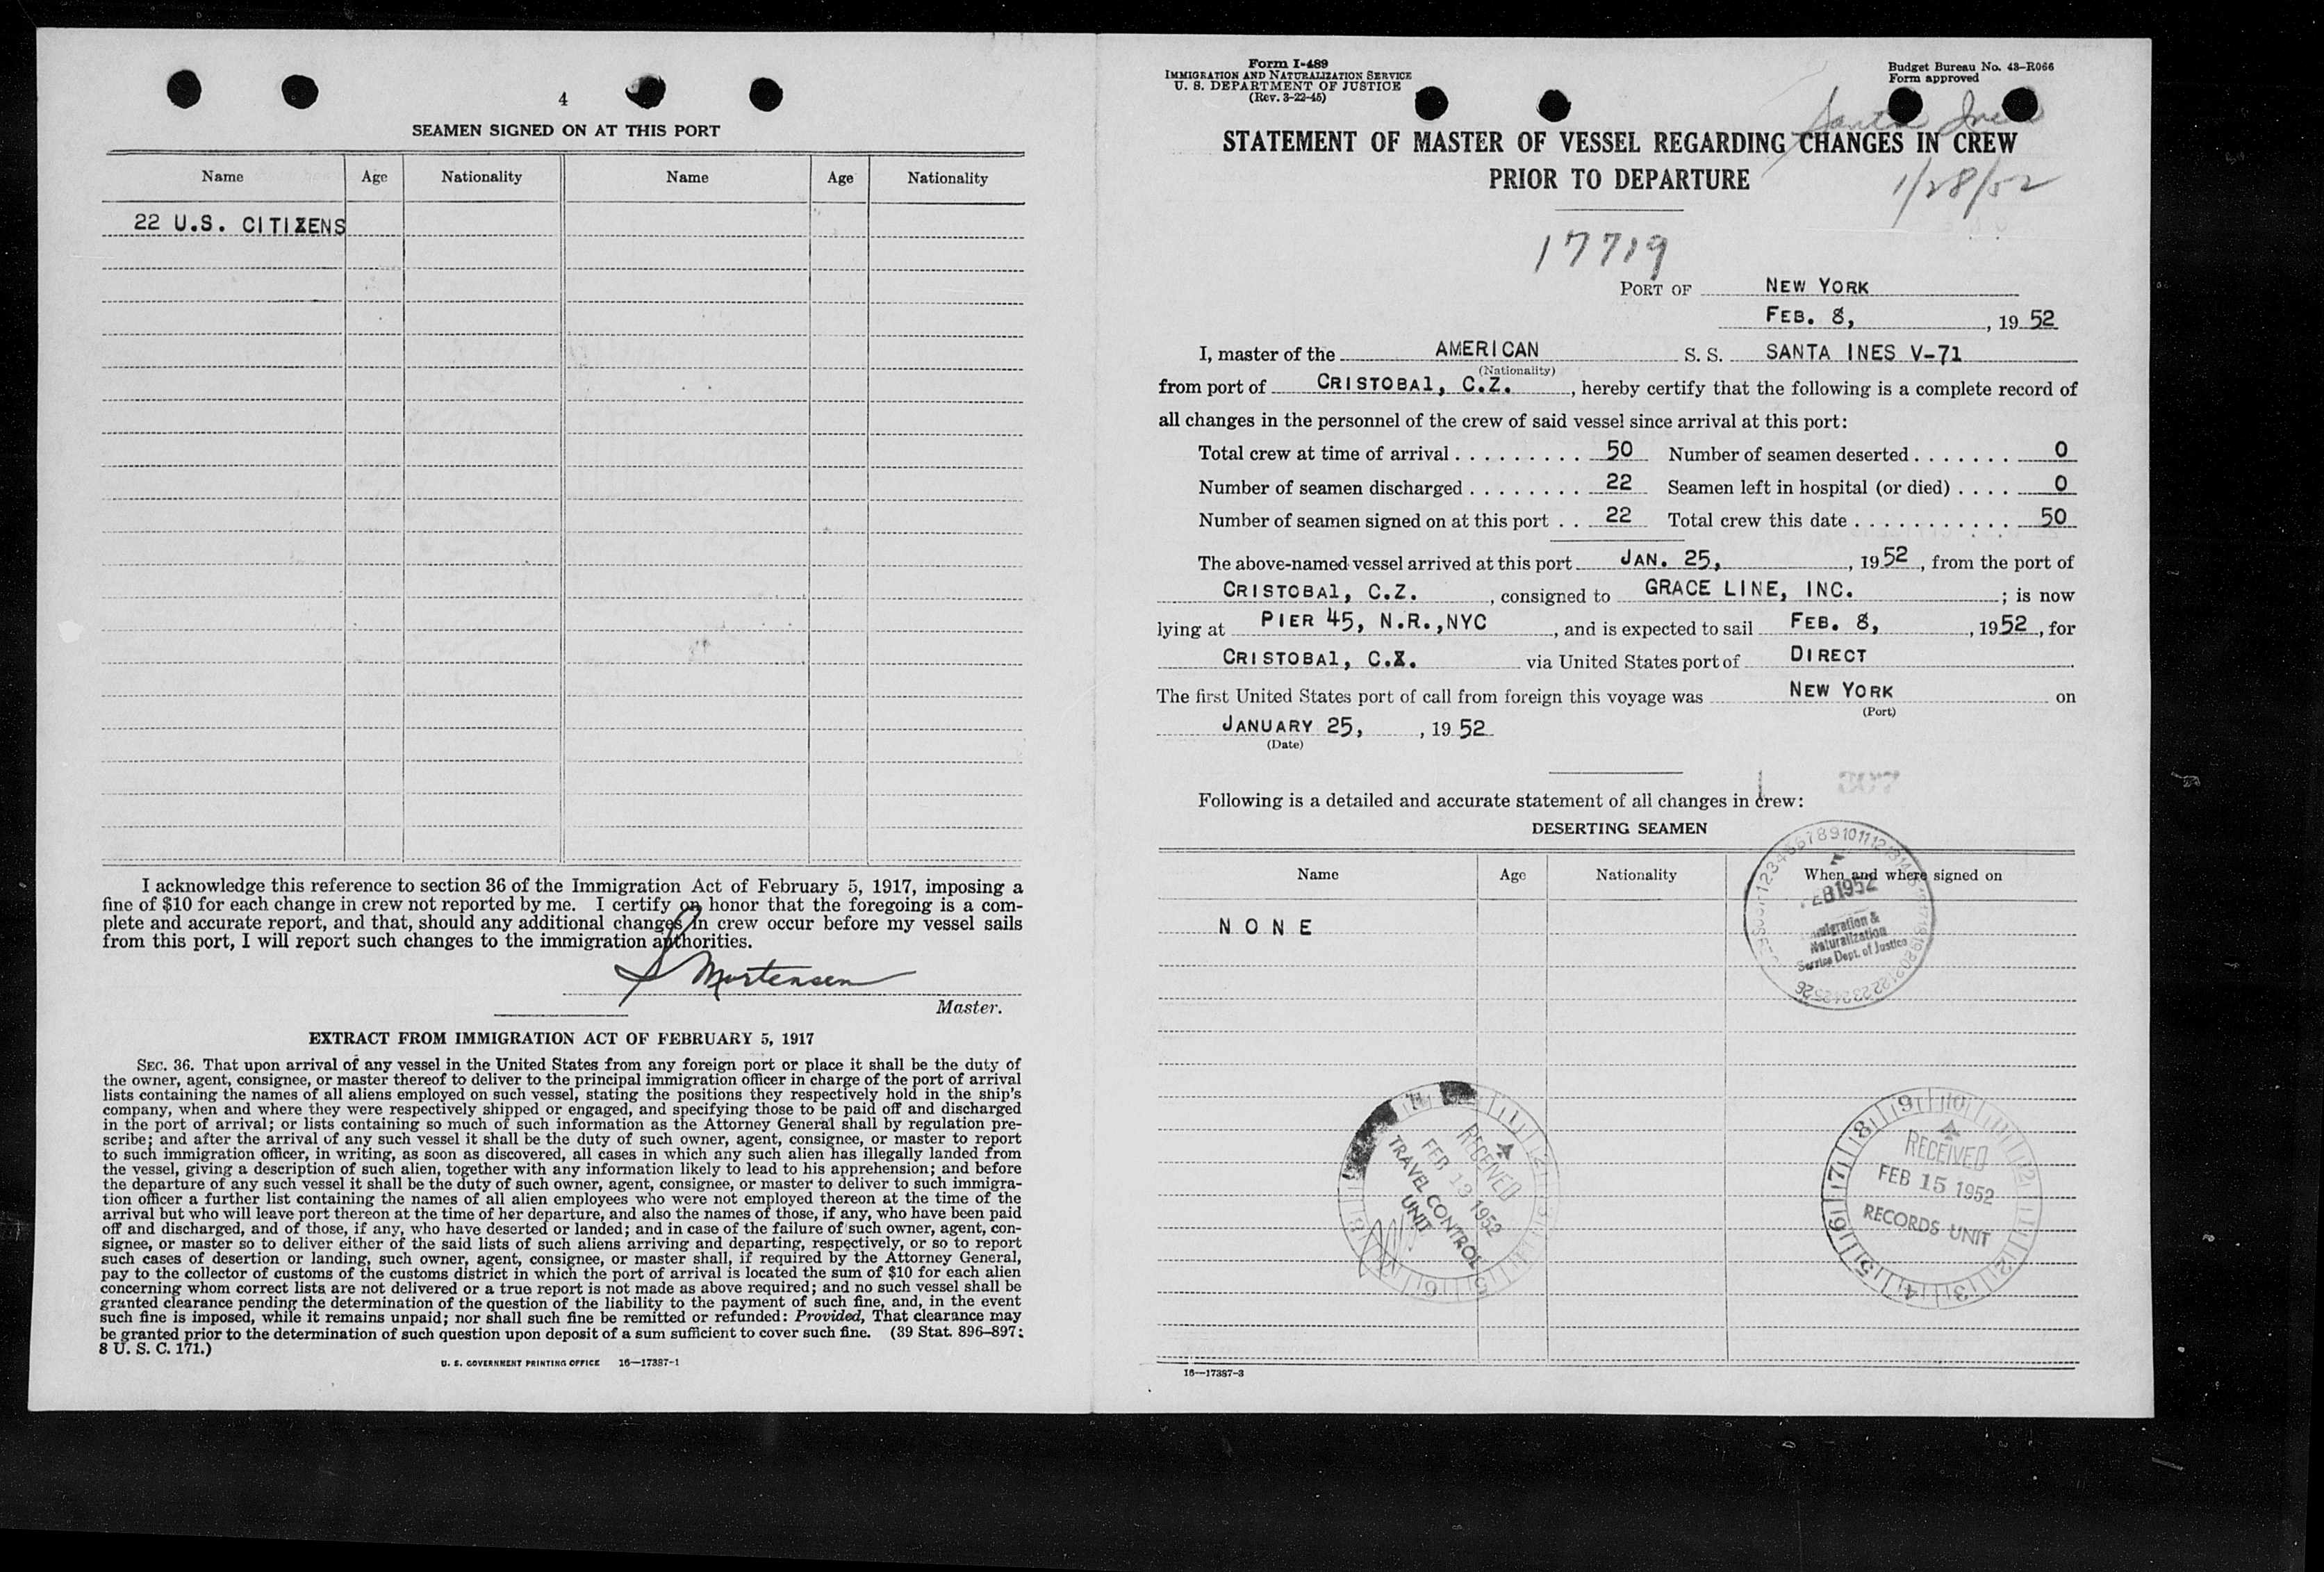 4
SEAMEN SIGNED ON AT THIS PORT
Name Age Nationality Name Age Nationality
22 U.S. CITIZENS
I acknowledge this reference to section 36 of the Immigration Act of February 5, 1917, imposing a
fine of $10 for each change in crew not reported by me. I certify on honor that the foregoing is a com-
plete and accurate report, and that, should any additional changes in crew occur before my vessel sails
from this port, I will report such changes to the immigration authorities.
S Mortensen
Master.
EXTRACT FROM IMMIGRATION ACT OF FEBRUARY 5, 1917
SEC. 36. That upon arrival of any vessel in the United States from any foreign port or place it shall be the duty of
the owner, agent, consignee, or master thereof to deliver to the principal immigration officer in charge of the port of arrival
lists containing the names of all aliens employed on such vessel, stating the positions they respectively hold in the ship's
company, when and where they were respectively shipped or engaged, and specifying those to be paid off and discharged
in the port of arrival; or lists containing so much of such information as the Attorney General shall by regulation pre-
scribe; and after the arrival of any such vessel it shall be the duty of such owner, agent, consignee, or master to report
to such immigration officer, in writing, as soon as discovered, all cases in which any such alien has illegally landed from
the vessel, giving a description of such alien, together with any information likely to lead to his apprehension; and before
the departure of any such vessel it shall be the duty of such owner, agent, consignee, or master to deliver to such immigra-
tion officer a further list containing the names of all alien employees who were not employed thereon at the time of the
arrival but who will leave port thereon at the time of her departure, and also the names of those, if any, who have been paid
off and discharged, and of those, if any, who have deserted or landed; and in case of the failure of such owner, agent, con-
signee, or master so to deliver either of the said lists of such aliens arriving and departing, respectively, or so to report
such cases of desertion or landing, such owner, agent, consignee, or master shall, if required by the Attorney General,
pay to the collector of customs of the customs district in which the port of arrival is located the sum of $10 for each alien
concerning whom correct lists are not delivered or a true report is not made as above required; and no such vessel shall be
granted clearance pending the determination of the question of the liability to the payment of such fine, and, in the event
such fine is imposed, while it remains unpaid; nor shall such fine be remitted or refunded: Provided, That clearance may
be granted prior to the determination of such question upon deposit of a sum sufficient to cover such fine. (39 Stat. 896–897;
8 U. S. C. 171.)
U. S. GOVERNMENT PRINTING OFFICE 16—17387-1
Form I-489
IMMIGRATION AND NATURALIZATION SERVICE
U. S. DEPARTMENT OF JUSTICE
(Rev. 3-22-45)
Budget Bureau No. 43-R066
Form approved
Santa Ines
STATEMENT OF MASTER OF VESSEL REGARDING CHANGES IN CREW
PRIOR TO DEPARTURE
1/28/52
17719
PORT OF NEW YORK
FEB. 8, , 19 52
I, master of the AMERICAN S. S. SANTA INES V-71
(Nationality)
from port of CRISTOBAl, C.Z. , hereby certify that the following is a complete record of
all changes in the personnel of the crew of said vessel since arrival at this port:
Total crew at time of arrival . . . . . . . . . . 50 Number of seamen deserted . . . . . . . 0
Number of seamen discharged . . . . . . . . 22 Seamen left in hospital (or died) . . . . 0
Number of seamen signed on at this port . . 22 Total crew this date . . . . . . . . . . . . 50
The above-named vessel arrived at this port JAN. 25, , 19 52 , from the port of
CRISTOBAl, C.Z. , consigned to GRACE LINE, INC. ; is now
lying at PIER 45, N.R.,NYC , and is expected to sail FEB. 8, , 19 52 , for
CRISTOBAl, C.Z. via United States port of DIRECT
The first United States port of call from foreign this voyage was NEW YORK on
(Port)
JANUARY 25, , 19 52
(Date)
Following is a detailed and accurate statement of all changes in crew:
DESERTING SEAMEN
Name Age Nationality When and where signed on
NONE
FEB 1952
Immigration &
Naturalization
Service Dept. of Justice
RECEIVED
FEB 13 1952
TRAVEL CONTROL
UNIT
RECEIVED
FEB 15 1952
RECORDS UNIT
16—17387-3